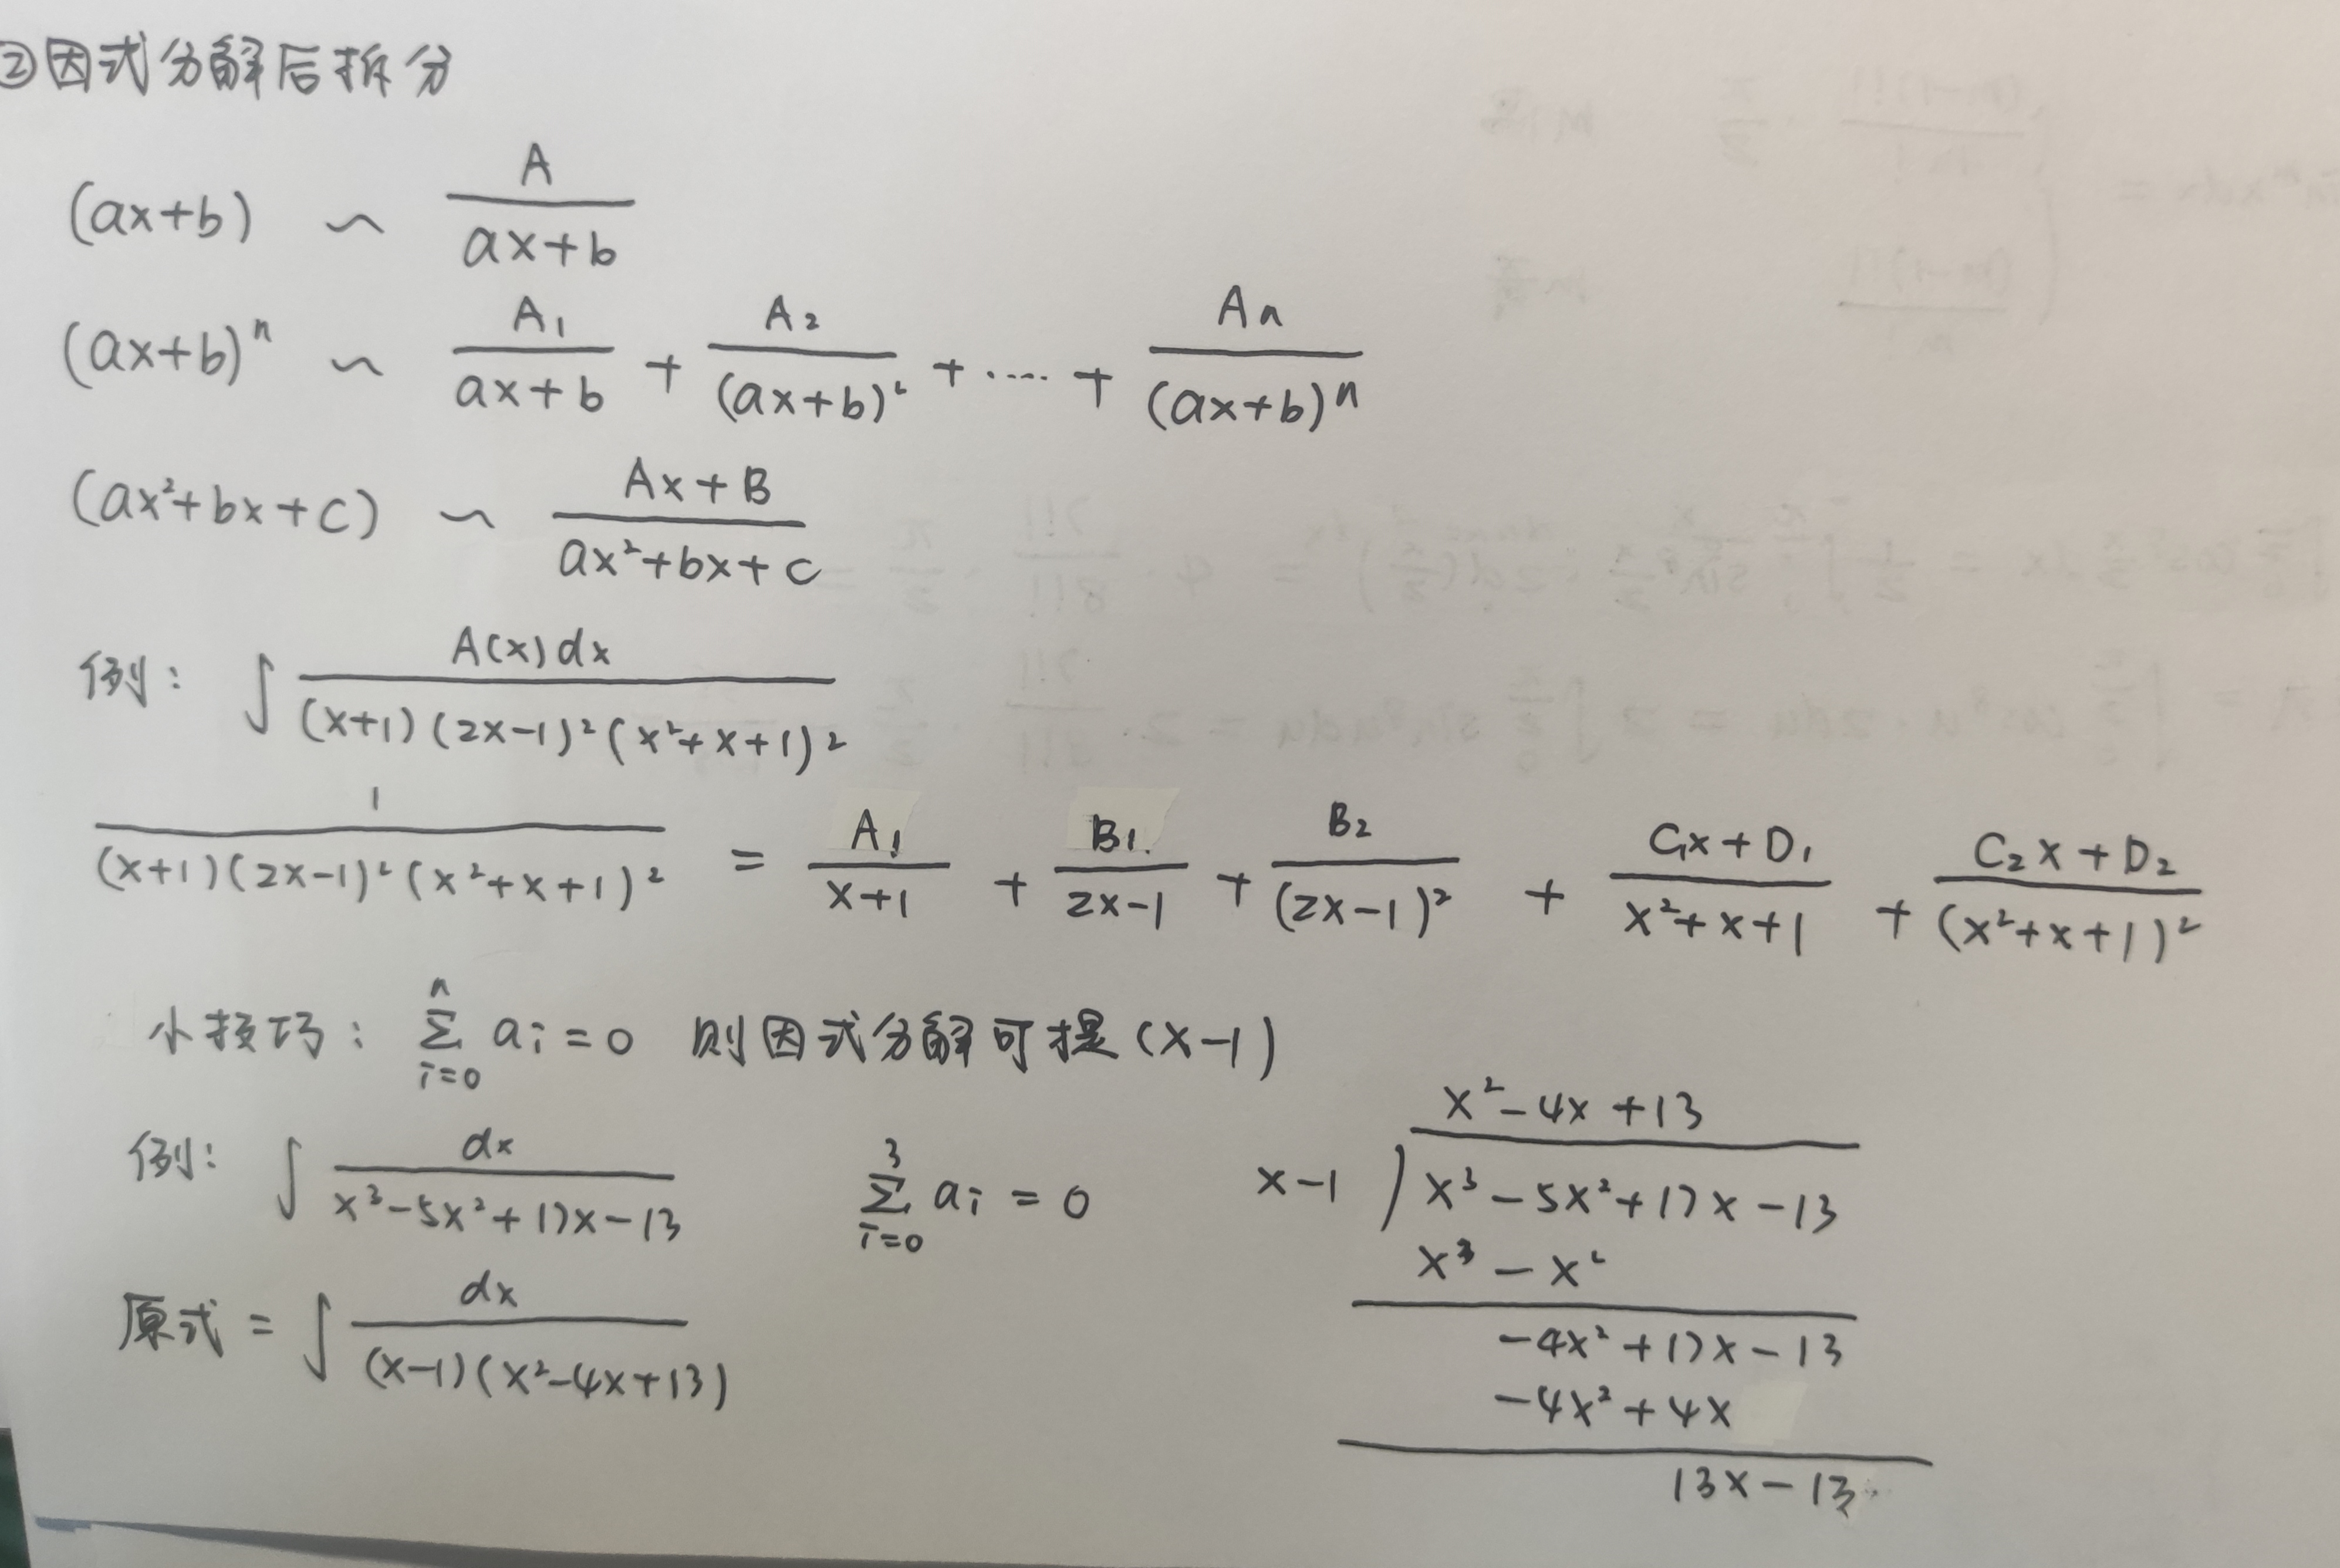 ②因式分解后拆分
(ax+b) ~ A/(ax+b)
(ax+b)ⁿ ~ A₁/(ax+b) + A₂/(ax+b)² + ···· + Aₙ/(ax+b)ⁿ
(ax²+bx+c) ~ (Ax+B)/(ax²+bx+c)
例: ∫ A(x)dx/((x+1)(2x-1)²(x²+x+1)²)
1/((x+1)(2x-1)²(x²+x+1)²) = A₁/(x+1) + B₁/(2x-1) + B₂/(2x-1)² + (C₁x+D₁)/(x²+x+1) + (C₂x+D₂)/(x²+x+1)²
小技巧: Σ_{i=0}^{n} aᵢ=0 则因式分解可提(x-1)
例: ∫ dx/(x³-5x²+17x-13) Σ_{i=0}^{3} aᵢ = 0
原式 = ∫ dx/((x-1)(x²-4x+13))
x²-4x+13
x-1 ) x³-5x²+17x-13
x³-x²
-4x²+17x-13
-4x²+4x
13x-13